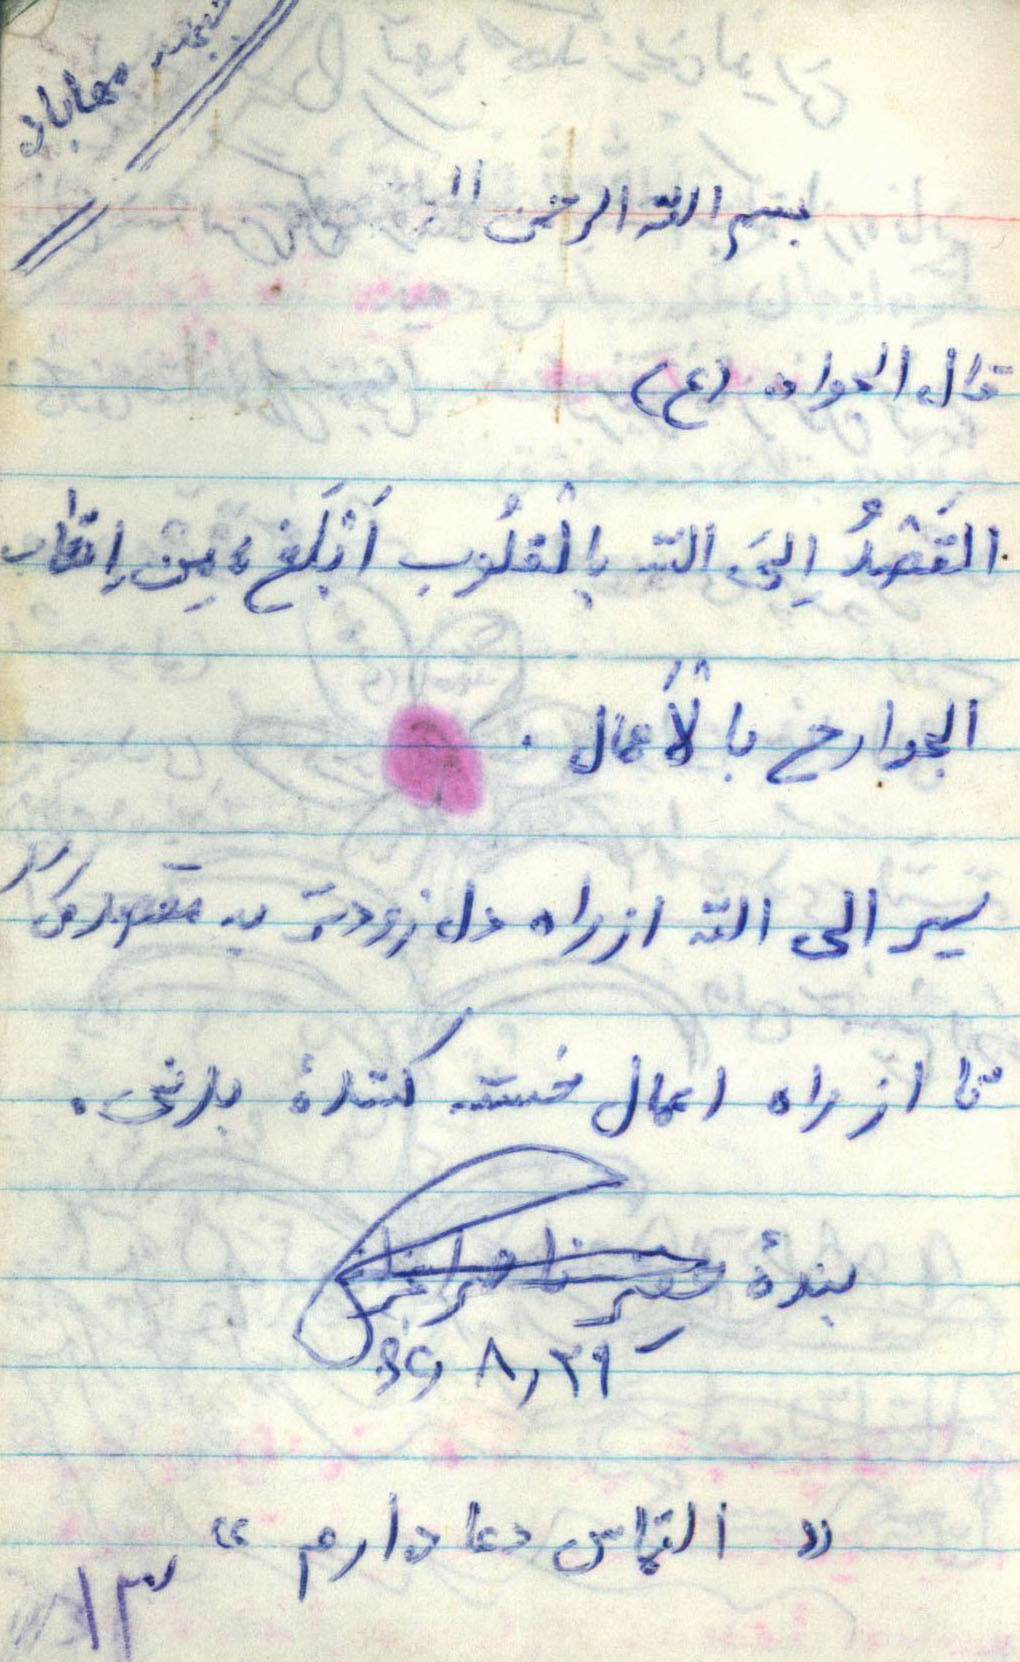 مهاباد
بسم الله الرحمن الر
قال الجواد (ع)
القَصْدُ اِلیَ الله بِالْقلُوب اَبْلَغ مِنْ اِتعٰاب
الجوارح بالْاَعمال .
سیر الی الله از راه دل زودتر به مقصود می‌رسد
تا از راه اعمال خسته کنندهٔ بدنی .
بندهٔ حقیر ناصر
۶۵٫۸٫۲۹
« التماس دعا دارم »
۱۳